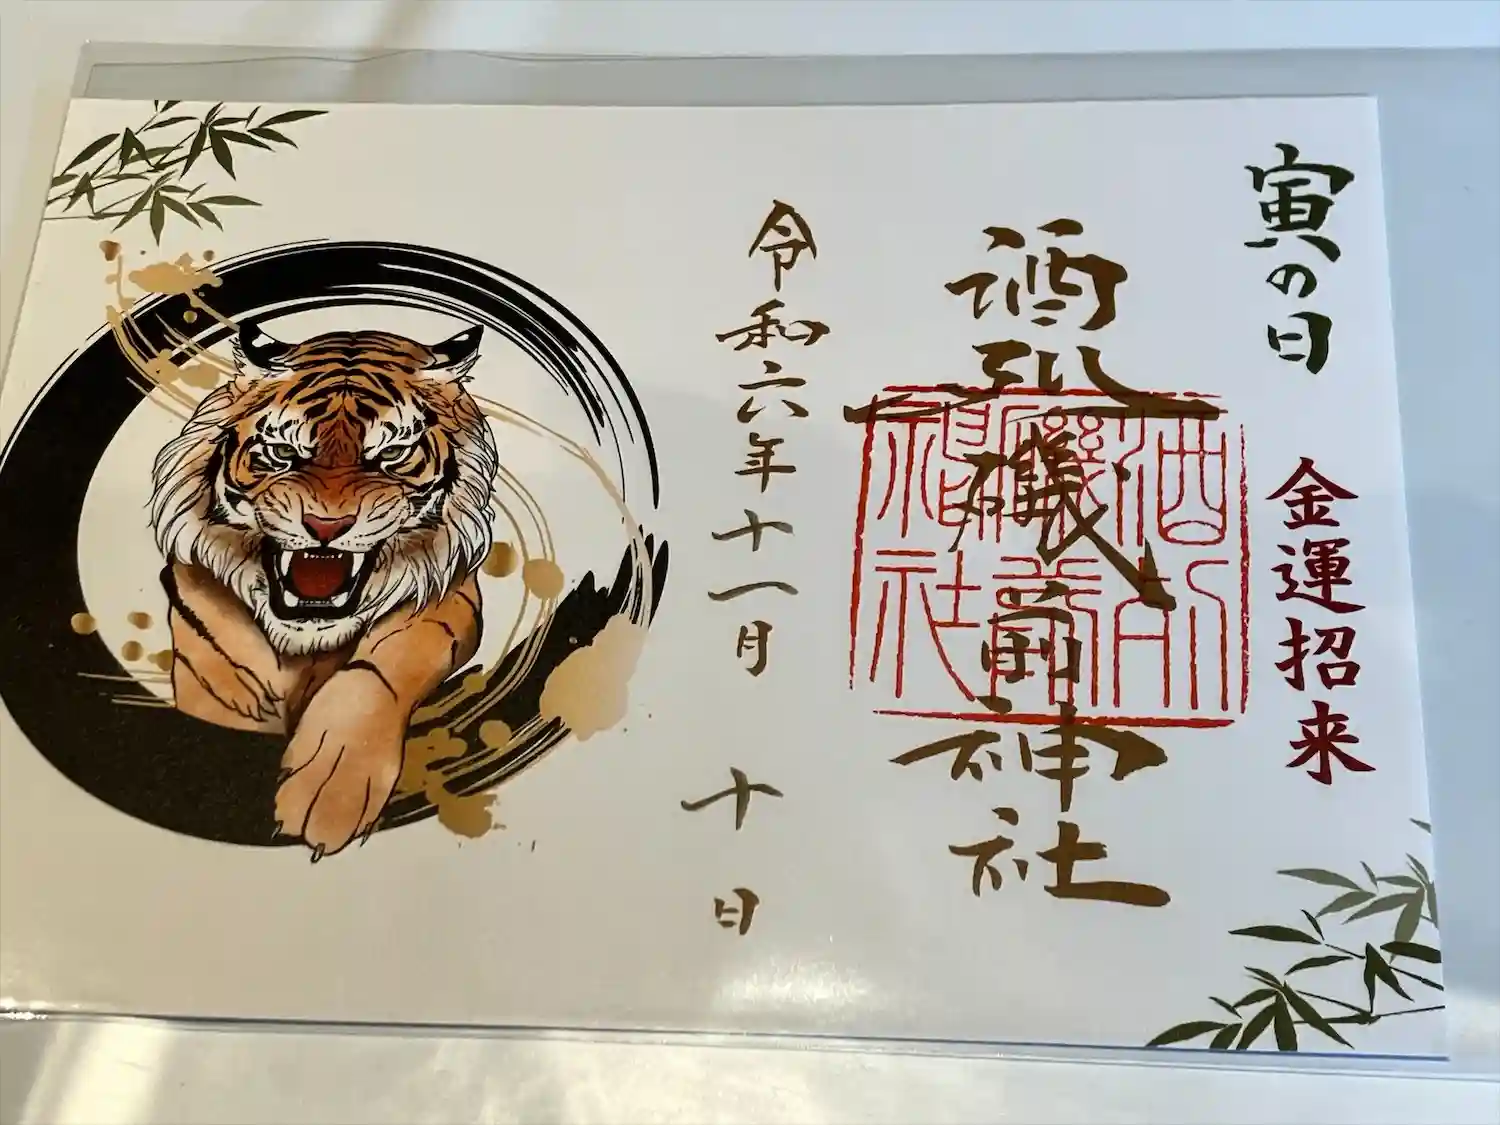 寅の日
金運招来
酒列磯前神社
酒列
磯前
神社
令和六年十一月十日